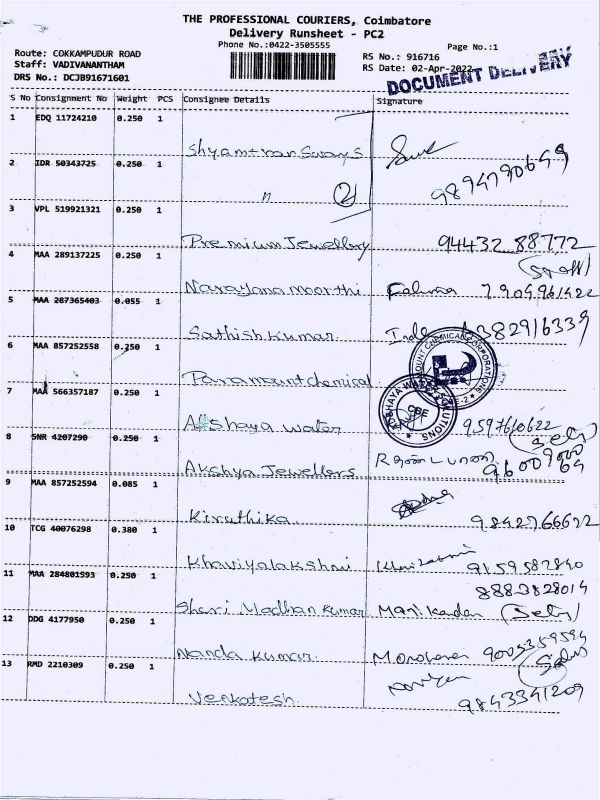 THE PROFESSIONAL COURIERS, Coimbatore
Delivery Runsheet - PC2
Phone No.:0422-3505555
Page No.:1
Route: COKKAMPUDUR ROAD
Staff: VADIVANANTHAM
DRS No.: DCJB91671601
RS No.: 916716
RS Date: 02-Apr-2022
DOCUMENT DELIVERY
S No Consignment No Weight PCS Consignee Details Signature
1 EDQ 11724210 0.250 1
2 IDR 50343725 0.250 1
" 2
3 VPL 519921321 0.250 1
Premium Jewellery 94432 88772
(Staff)
4 MAA 289137225 0.250 1
Narayana moorthi
5 MAA 287365403 0.055 1
Sathish Kumar 6382916339
6 MAA 857252558 0.250 1
Paramount chemical
7 MAA 566357187 0.250 1
Akshaya water 9597610622
(Self)
8 SNR 4207290 0.250 1
Akshya Jewellers
9 MAA 857252594 0.085 1
Kiruthika 9842766622
10 TCG 40076298 0.380 1
Khaviyalakshmi 9159587840
11 MAA 284801593 0.250 1
8883828014
Shari Madhan Kumar Manikadan (Self)
12 DDG 4177950 0.250 1
Nanda Kumar Manoharan
13 RMD 2210309 0.250 1
Venkatesh 9843341209